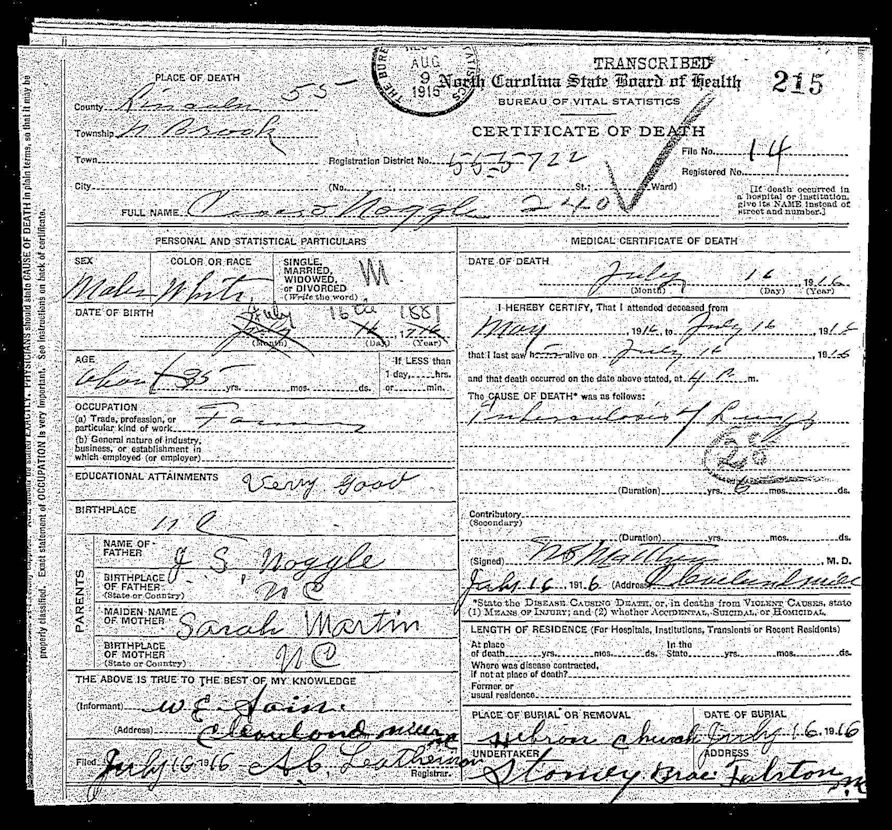 TRANSCRIBED
North Carolina State Board of Health
215
BUREAU OF VITAL STATISTICS
CERTIFICATE OF DEATH
AUG
9
1916
THE BUREAU
PLACE OF DEATH
County Lincoln 55
Township N Brook
Town
Registration District No. 555722
File No. 14
Registered No.
City
(No. , St.; Ward)
[If death occurred in
a hospital or institution,
give its NAME instead of
street and number.]
FULL NAME Noggle 240
PERSONAL AND STATISTICAL PARTICULARS
SEX
Male
COLOR OR RACE
White
SINGLE,
MARRIED,
WIDOWED,
or DIVORCED
(Write the word)
M
DATE OF BIRTH
July 16 1881
July 16
(Month) (Day) (Year)
AGE
About 35 yrs. mos. ds.
If LESS than
1 day, hrs.
or min.
OCCUPATION
(a) Trade, profession, or
particular kind of work Farmer
(b) General nature of industry,
business, or establishment in
which employed (or employer)
EDUCATIONAL ATTAINMENTS Very good
BIRTHPLACE
N C
PARENTS
NAME OF
FATHER
J S Noggle
BIRTHPLACE
OF FATHER
(State or Country)
N C
MAIDEN NAME
OF MOTHER
Sarah Martin
BIRTHPLACE
OF MOTHER
(State or Country)
N C
THE ABOVE IS TRUE TO THE BEST OF MY KNOWLEDGE
(Informant) W E Sain
(Address) Cleveland Mills NC
Filed July 16 1916 A.C. Leatherman
Registrar.
MEDICAL CERTIFICATE OF DEATH
DATE OF DEATH
July 16, 1916
(Month) (Day) (Year)
I HEREBY CERTIFY, That I attended deceased from
May, 1916, to July 16 1916
that I last saw him alive on July 16, 1916
and that death occurred on the date above stated, at 4 m.
The CAUSE OF DEATH* was as follows:
Tuberculosis of Lungs
28
(Duration) yrs. 6 mos. ds.
Contributory
(Secondary)
(Duration) yrs. mos. ds.
(Signed) , M. D.
July 16 1916 (Address) Cleveland Mills
*State the DISEASE CAUSING DEATH, or, in deaths from VIOLENT CAUSES, state
(1) MEANS OF INJURY; and (2) whether ACCIDENTAL, SUICIDAL, or HOMICIDAL.
LENGTH OF RESIDENCE (For Hospitals, Institutions, Transients or Recent Residents)
At place
of death yrs. mos. ds.
In the
State yrs. mos. ds.
Where was disease contracted,
if not at place of death?
Former or
usual residence
PLACE OF BURIAL OR REMOVAL
Hebron Church
DATE OF BURIAL
July 16, 1916
UNDERTAKER
Stamey Bros
ADDRESS
Fallston NC
EXACTLY. PHYSICIANS should state CAUSE OF DEATH in plain terms, so that it may be
properly classified. Exact statement of OCCUPATION is very important. See instructions on back of certificate.